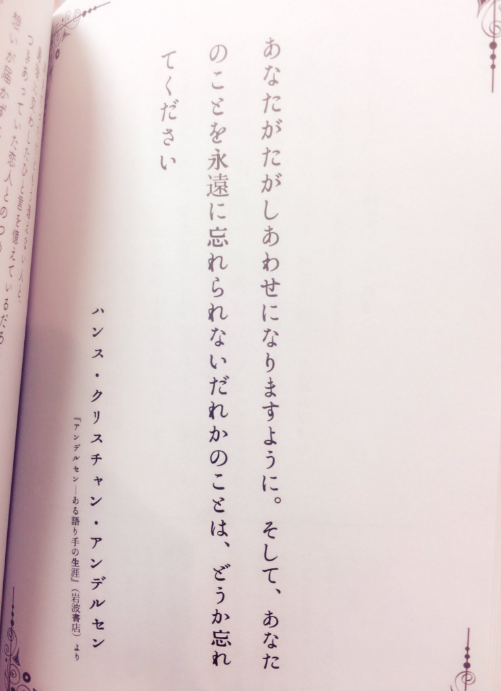 あなたがたがしあわせになりますように。そして、あなた
のことを永遠に忘れられないだれかのことは、どうか忘れ
てください
ハンス・クリスチャン・アンデルセン
『アンデルセン―ある語り手の生涯』（岩波書店）より